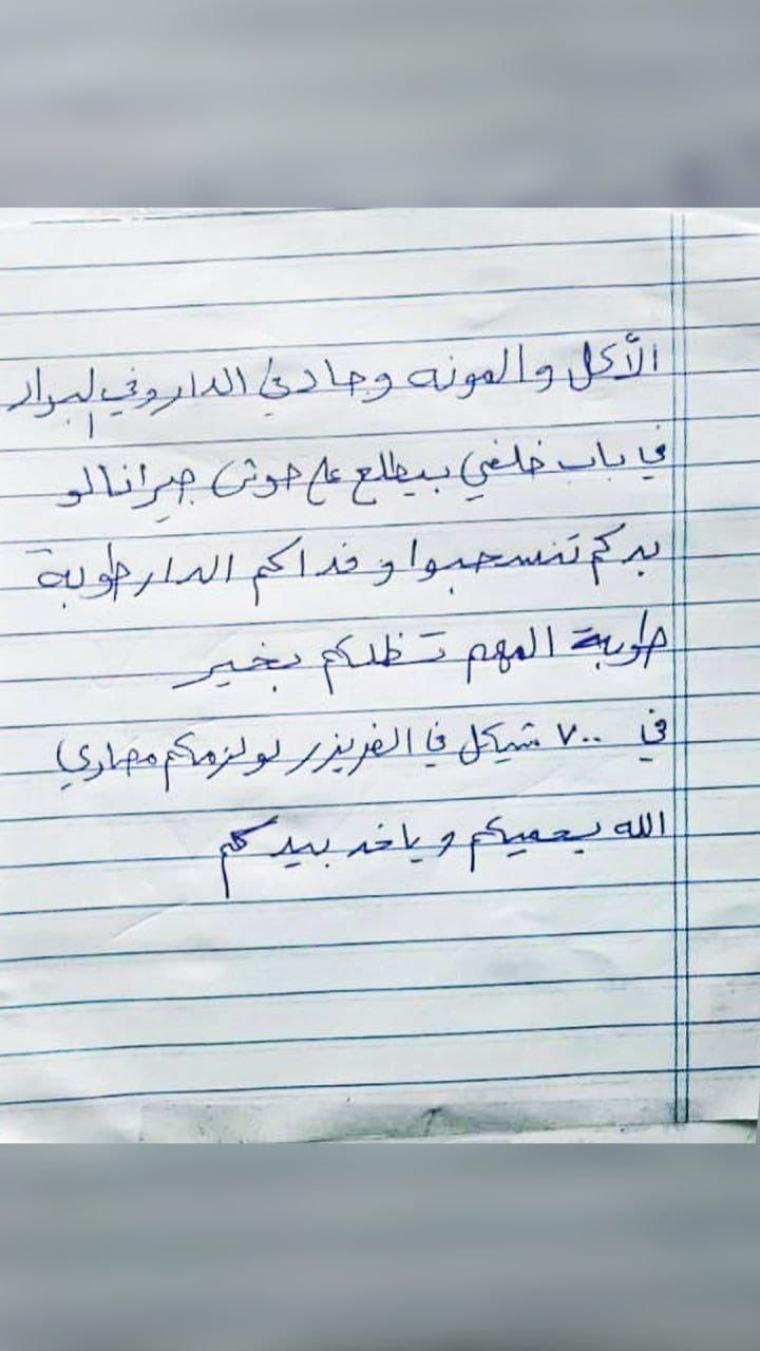 الأكل والمونه وجاد في الدار وفي البراد
في باب خلفي بيطلع ع حوش جيرانا لو
بدكم تنسحبوا و فداكم الدار طوبة
طوبة المهم تظلكم بخير
في ٧٠٠ شيكل في الفريزر لو لزمكم مصاري
الله يحميكم وياخد بيدكم